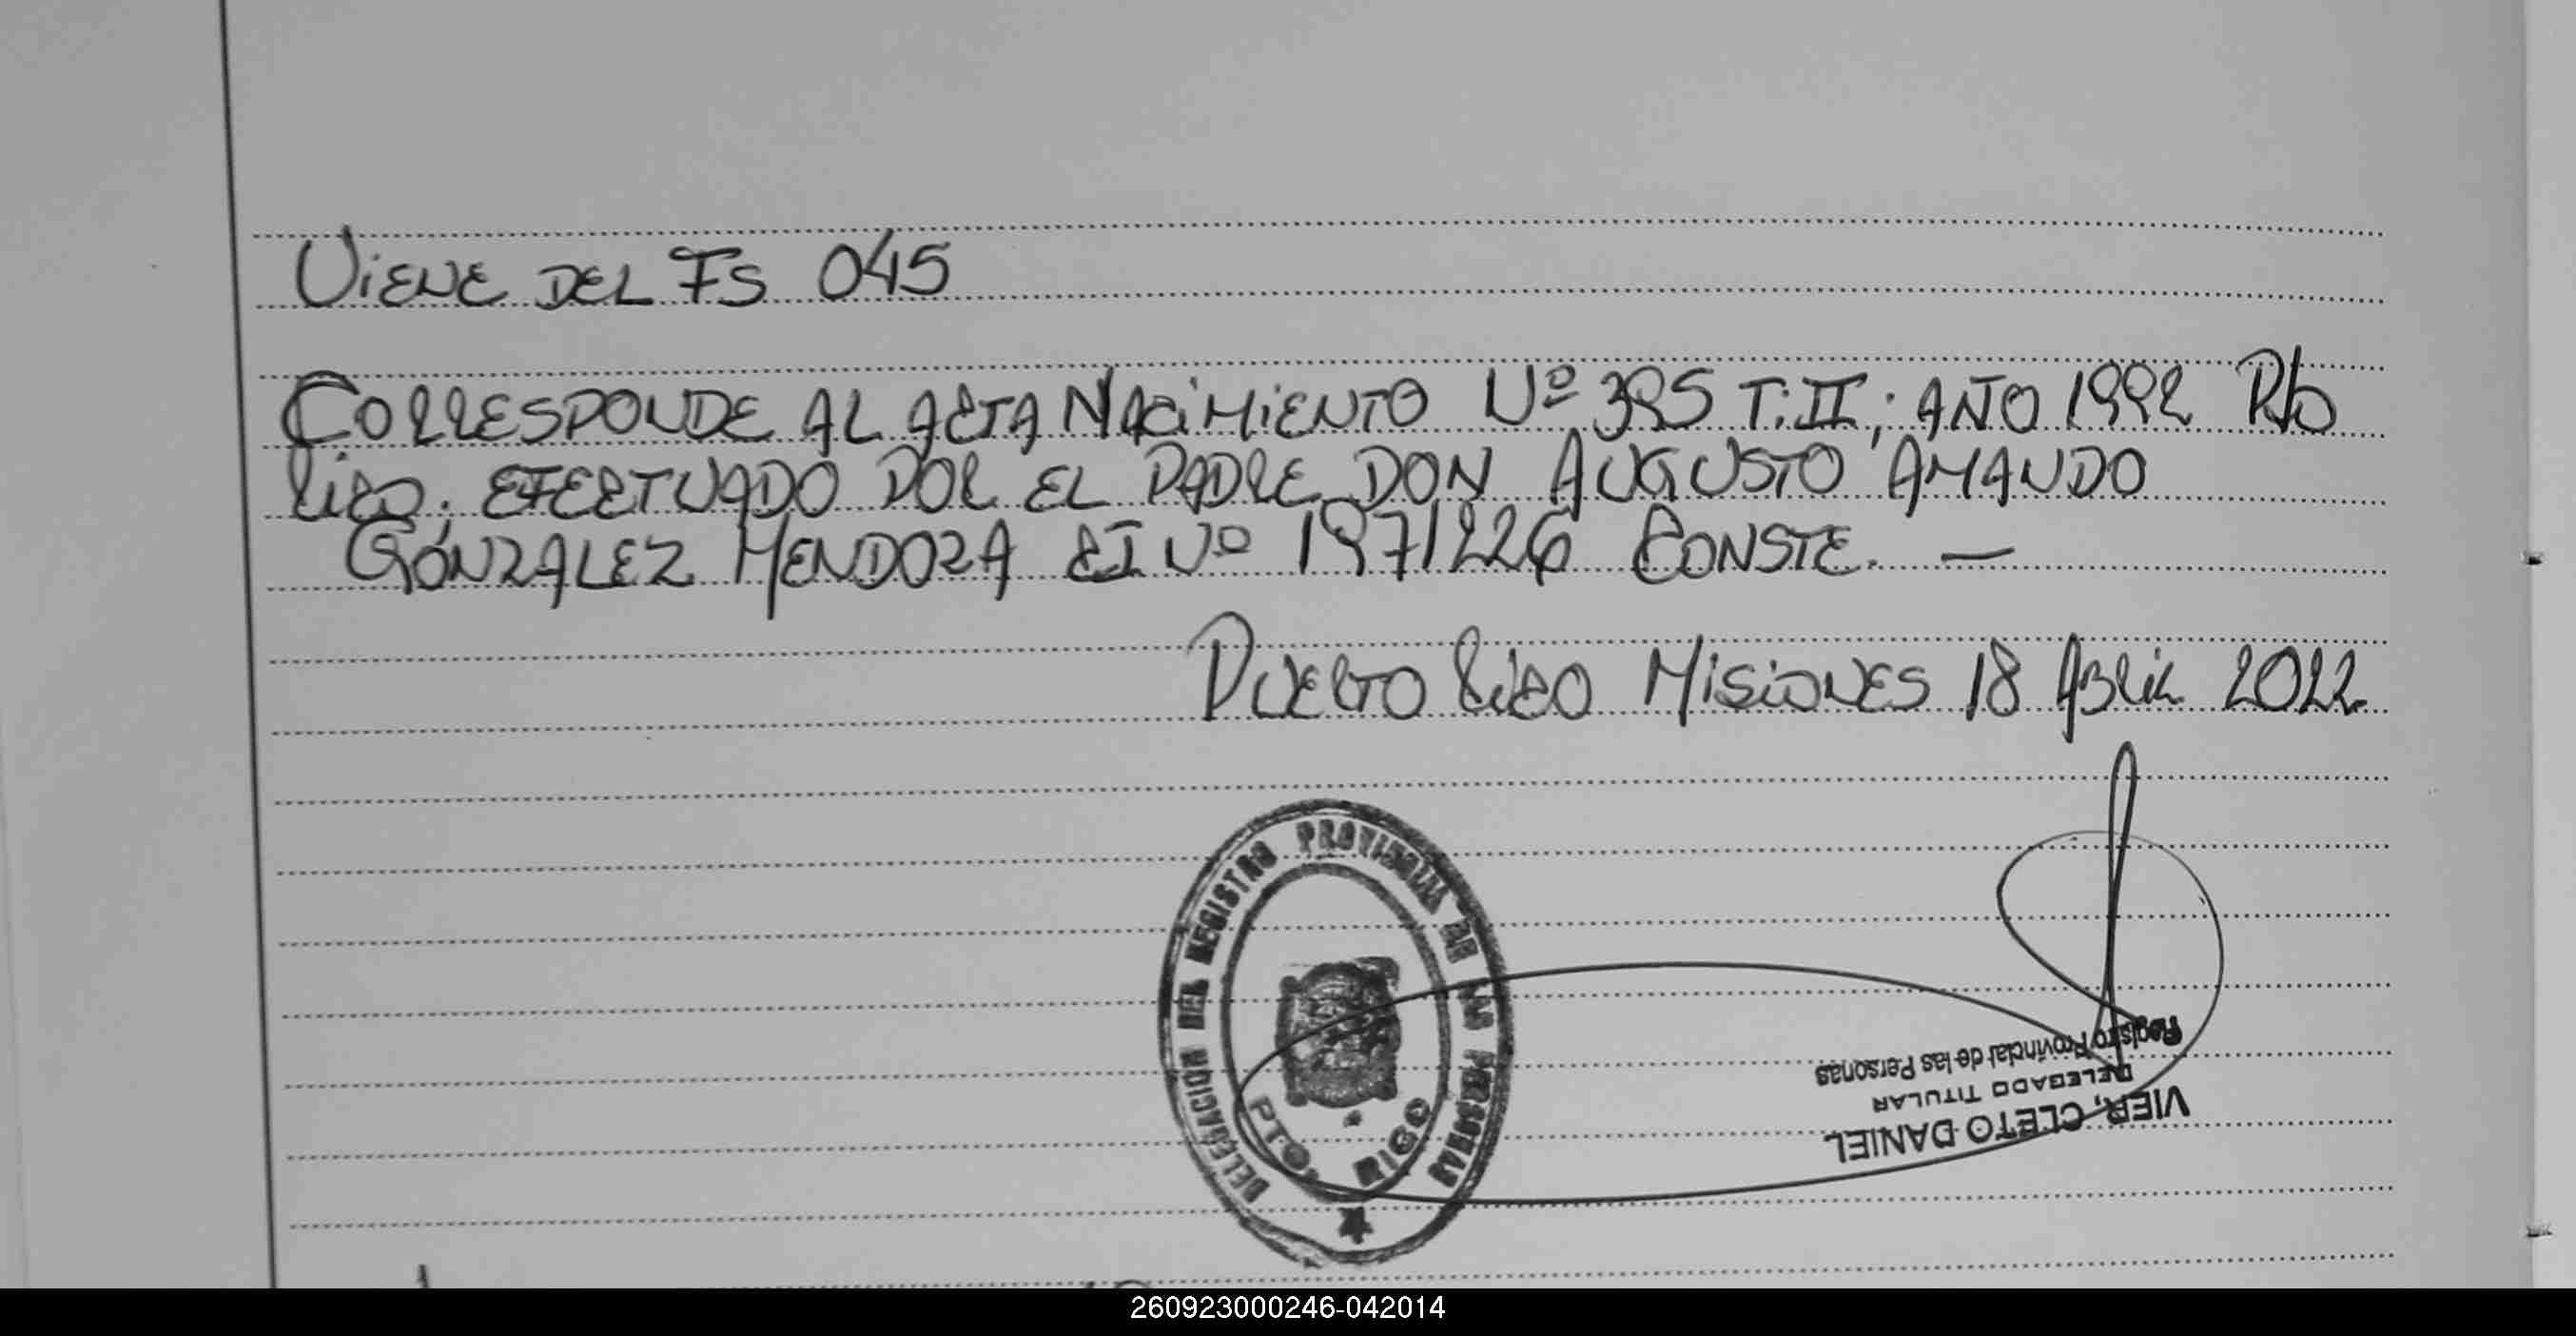 VIENE DEL FS 045
CORRESPONDE AL ACTA NACIMIENTO Nº 395 T: II; AÑO 1992 Pto
RICO. EFECTUADO POR EL PADRE DON AUGUSTO AMANDO
GONZALEZ MENDOZA CI Nº 1971226 CONSTE. —
PUERTO RICO MISIONES 18 ABRIL 2022
DELEGACION DEL REGISTRO PROVINCIAL DE LAS PERSONAS
PTO. RICO
VIER, CLETO DANIEL
DELEGADO TITULAR
Registro Provincial de las Personas
260923000246-042014